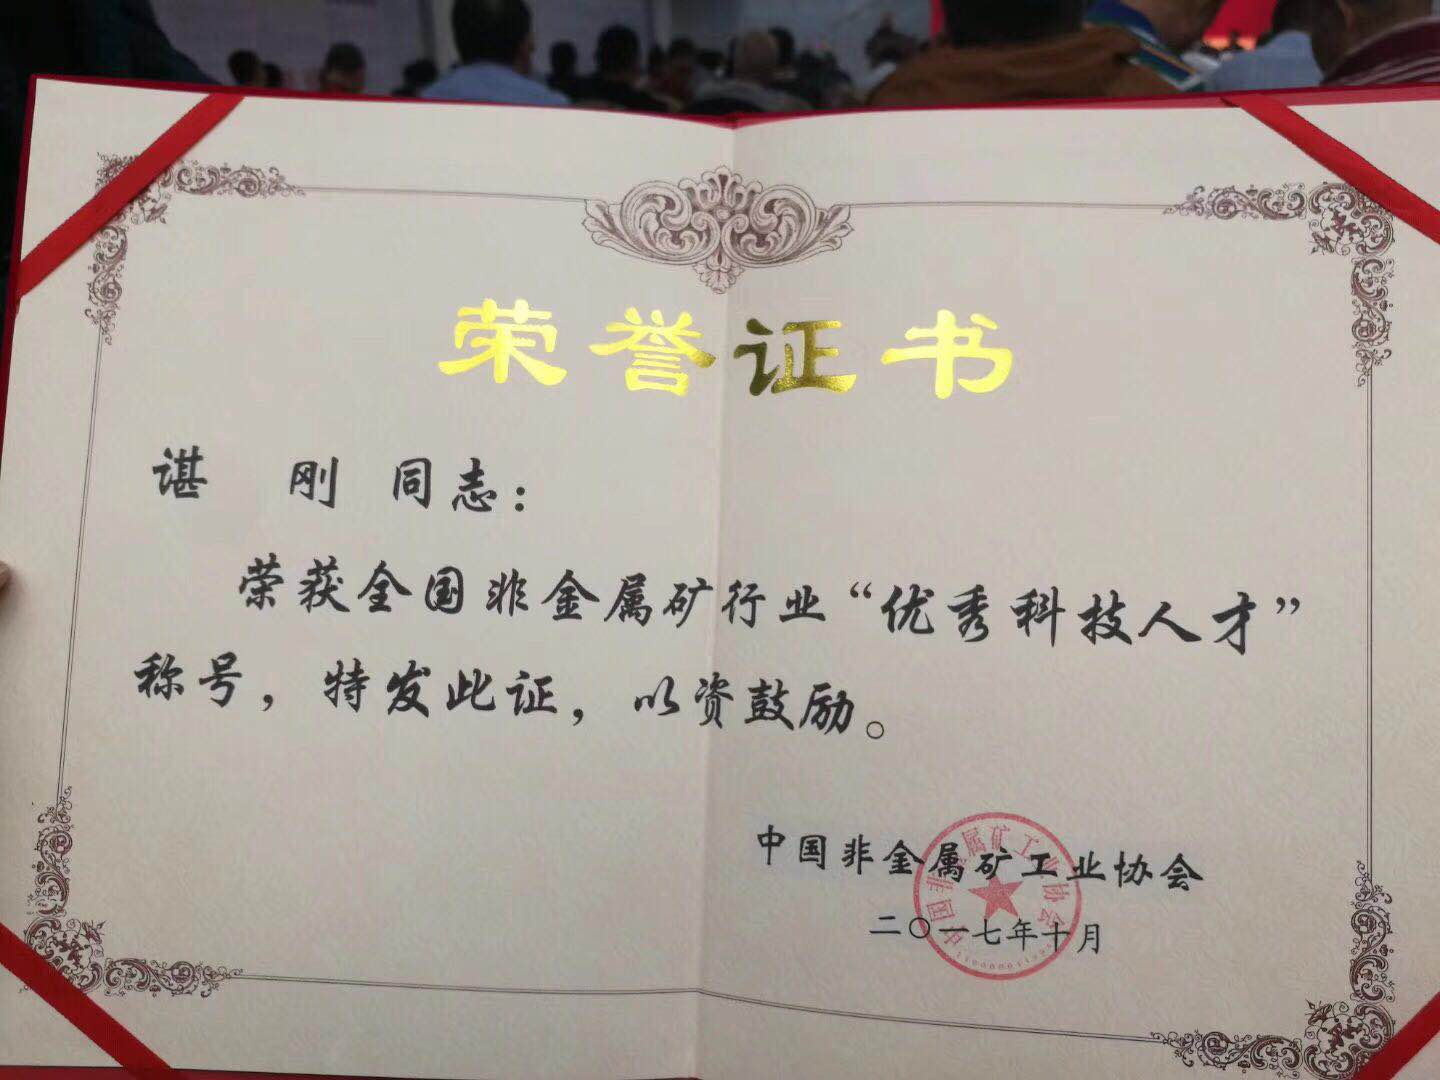 荣誉证书
谌 刚 同志：
荣获全国非金属矿行业“优秀科技人才”
称号，特发此证，以资鼓励。
中国非金属矿工业协会
二〇一七年十月
中国非金属矿工业协会